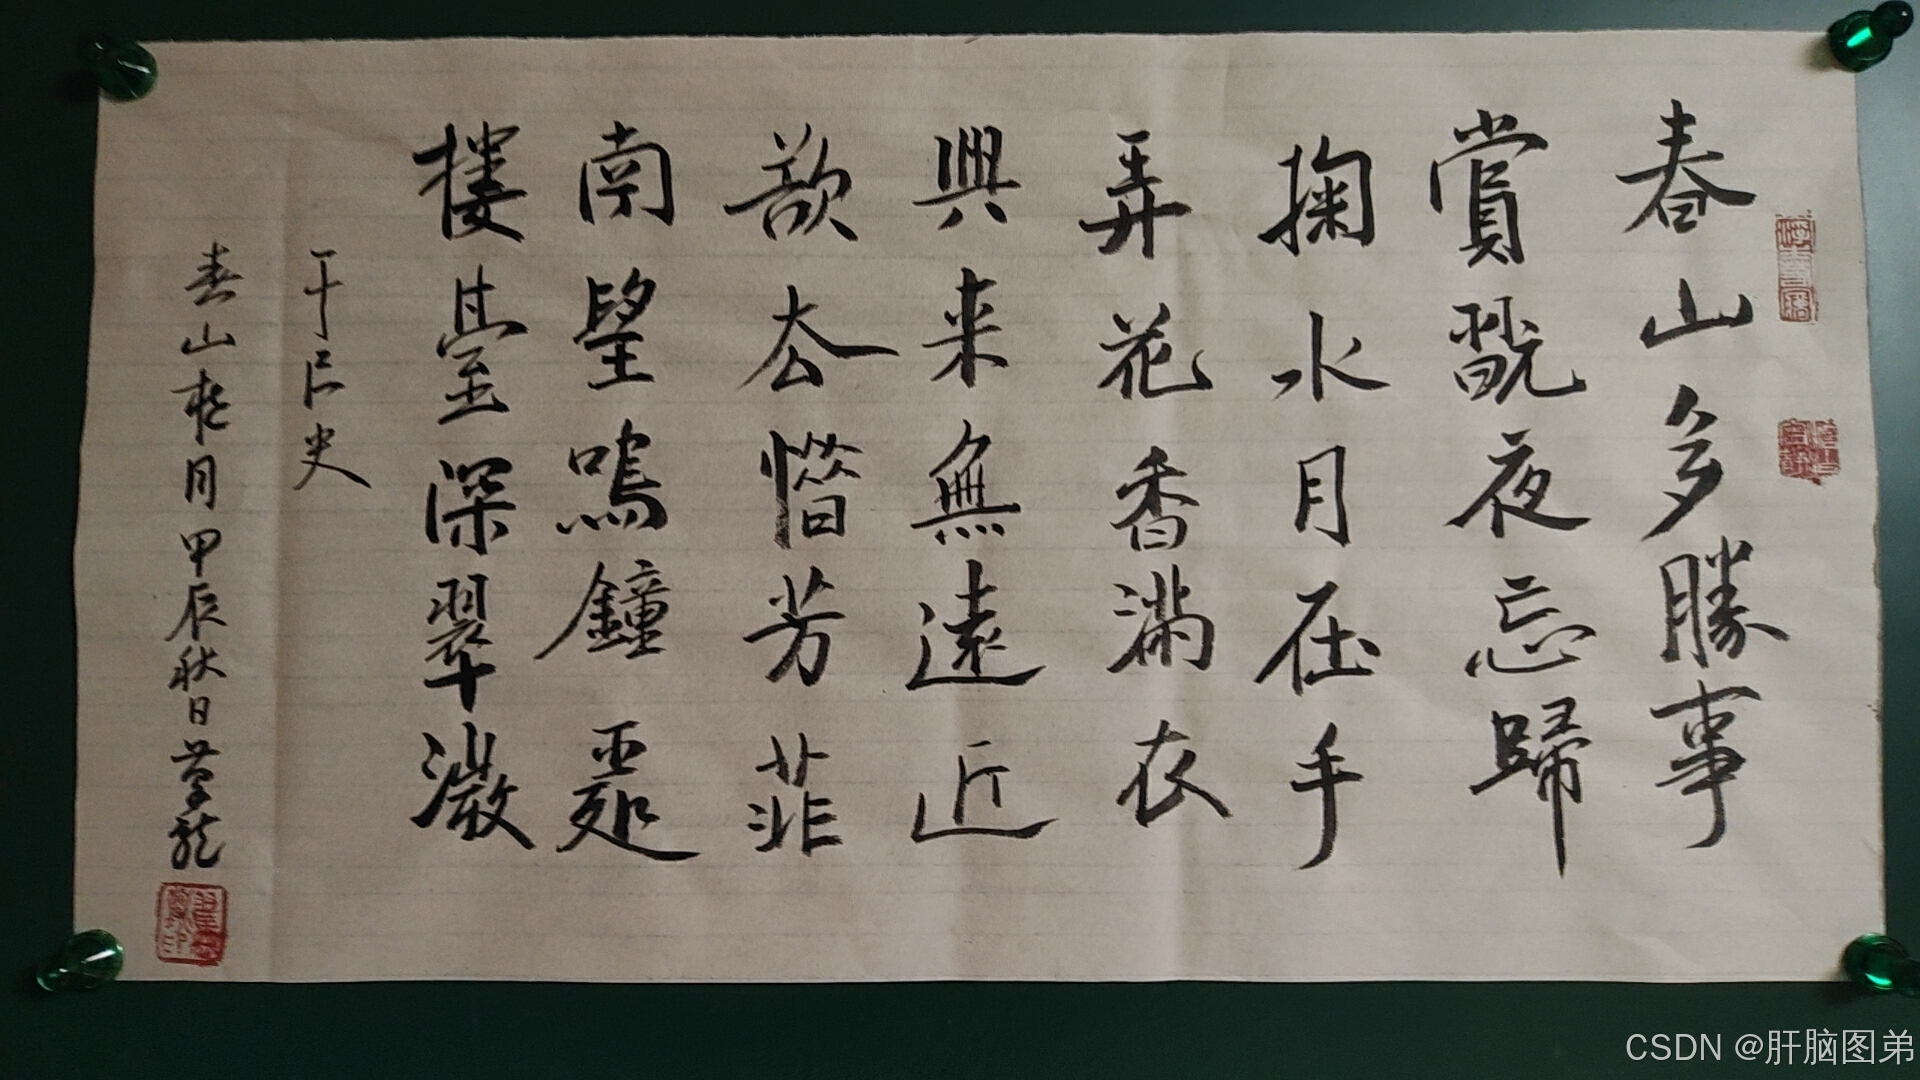 春山多勝事
賞翫夜忘歸
掬水月在手
弄花香滿衣
興来無遠近
欲去惜芳菲
南望鳴鐘處
樓臺深翠微
于良史
春山夜月甲辰秋日
CSDN @肝脑图弟